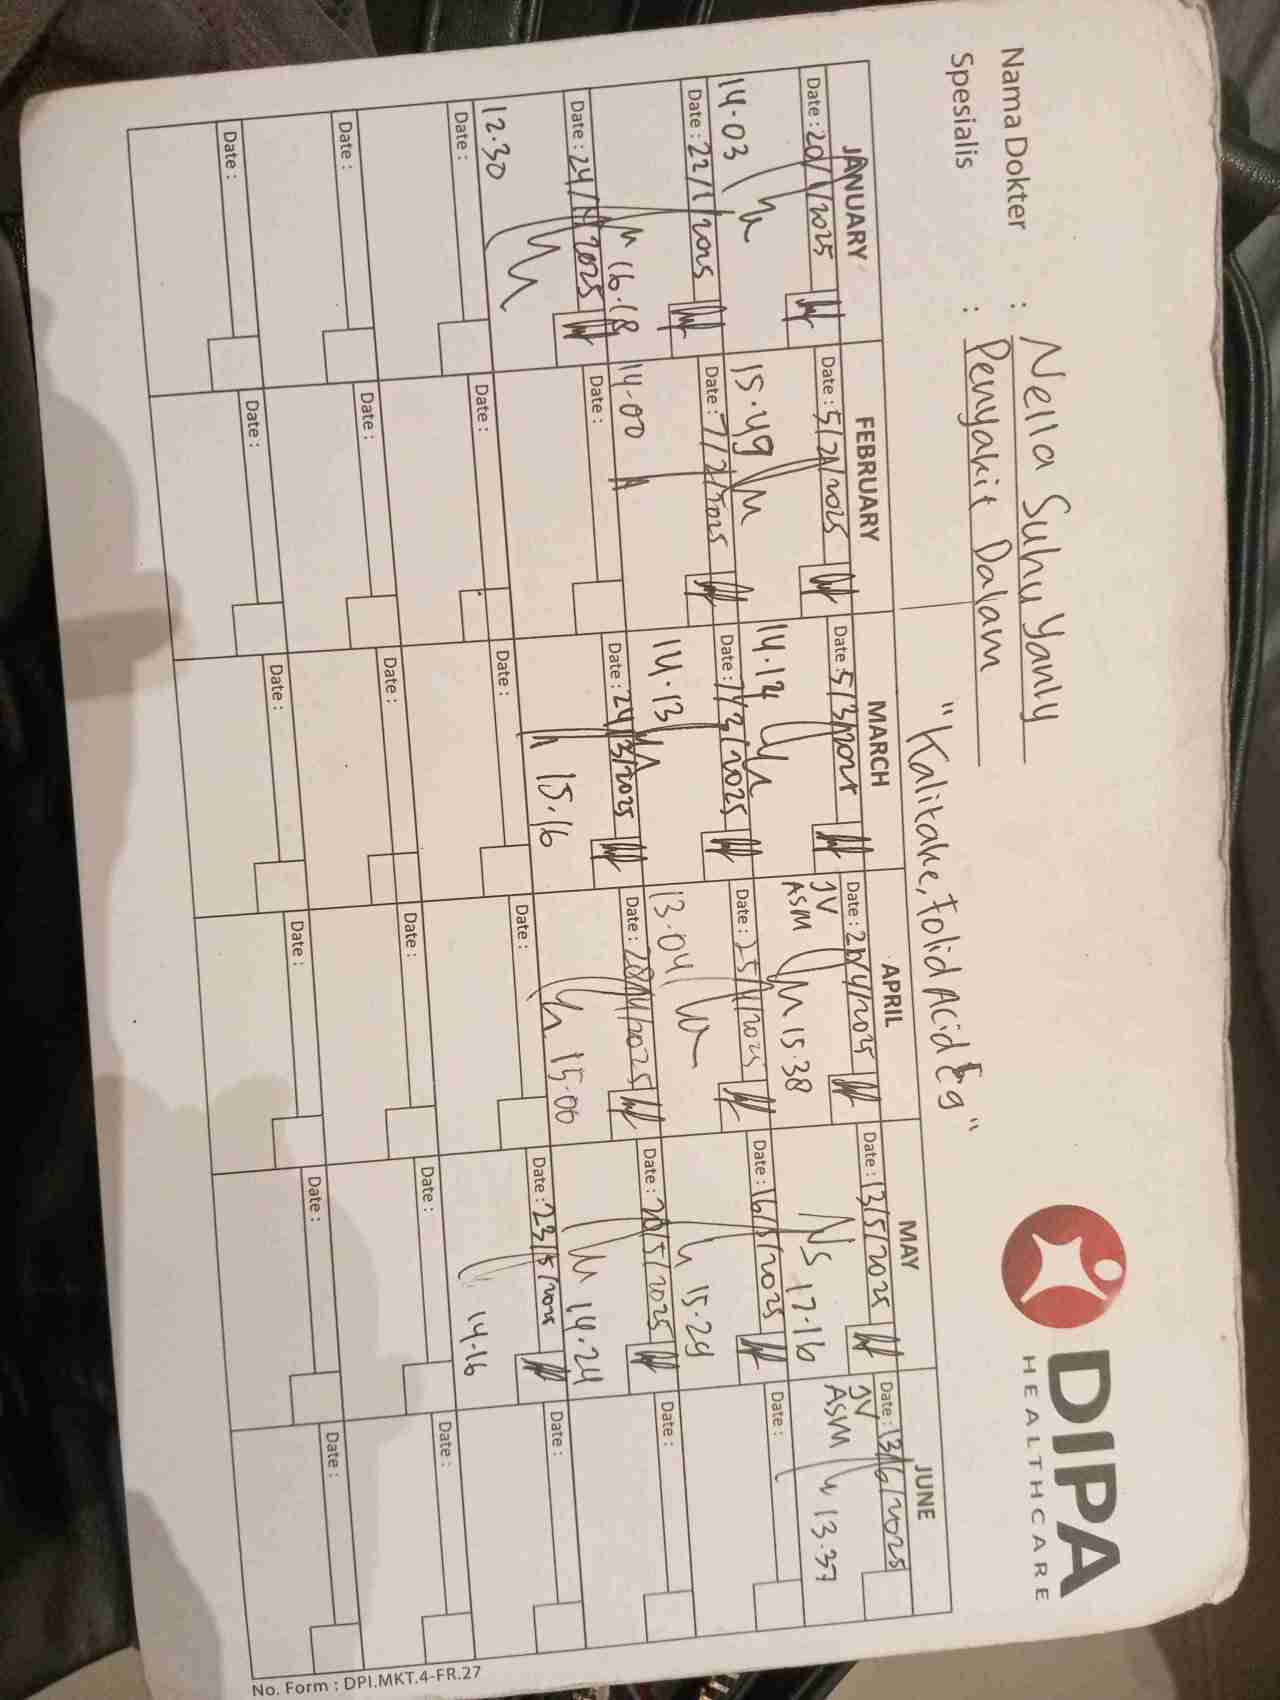 Nama Dokter : Nella Suhu Yanly
Spesialis : Penyakit Dalam
DIPA
HEALTHCARE
"Kalitake, Folid Acid Eg"
JANUARY FEBRUARY MARCH APRIL MAY JUNE
Date : 20/1/2025 Date : 5/2/2025 Date : 5/3/2025 Date : /4/2025 Date : 13/5/2025 Date : 13/6/2025
14.03 15.49 14.12 JV ASM 15.38 17.16 JV ASM 13.37
Date : 22/1/2025 Date : 7/2/2025 Date : /3/2025 Date : 25/4/2025 Date : 16/5/2025 Date :
16.18 14.00 14.13 13.04 15.24
Date : 24/1/2025 Date : Date : 24/3/2025 Date : 28/4/2025 Date : 20/5/2025 Date :
12.30 15.16 15.00 14.24
Date : Date : Date : Date : Date : 23/5/2025 Date :
14.16
Date : Date : Date : Date : Date : Date :
Date : Date : Date : Date : Date : Date :
No. Form : DPI.MKT.4-FR.27